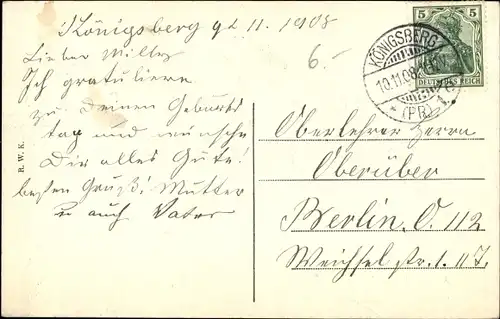 Königsberg 9.11.1908
Lieber Willy
Ich gratuliere
zu Deinem Geburts
tag und wünsche
Dir alles Gute!
besten Gruß! Mutter
u auch Vater
6.-
R. W. K.
5 5
DEUTSCHES REICH
KÖNIGSBERG
10.11.08
* (PR) 1.
Oberlehrer Herrn
Oberüber
Berlin. O. 112
Weichsel str. 1. II